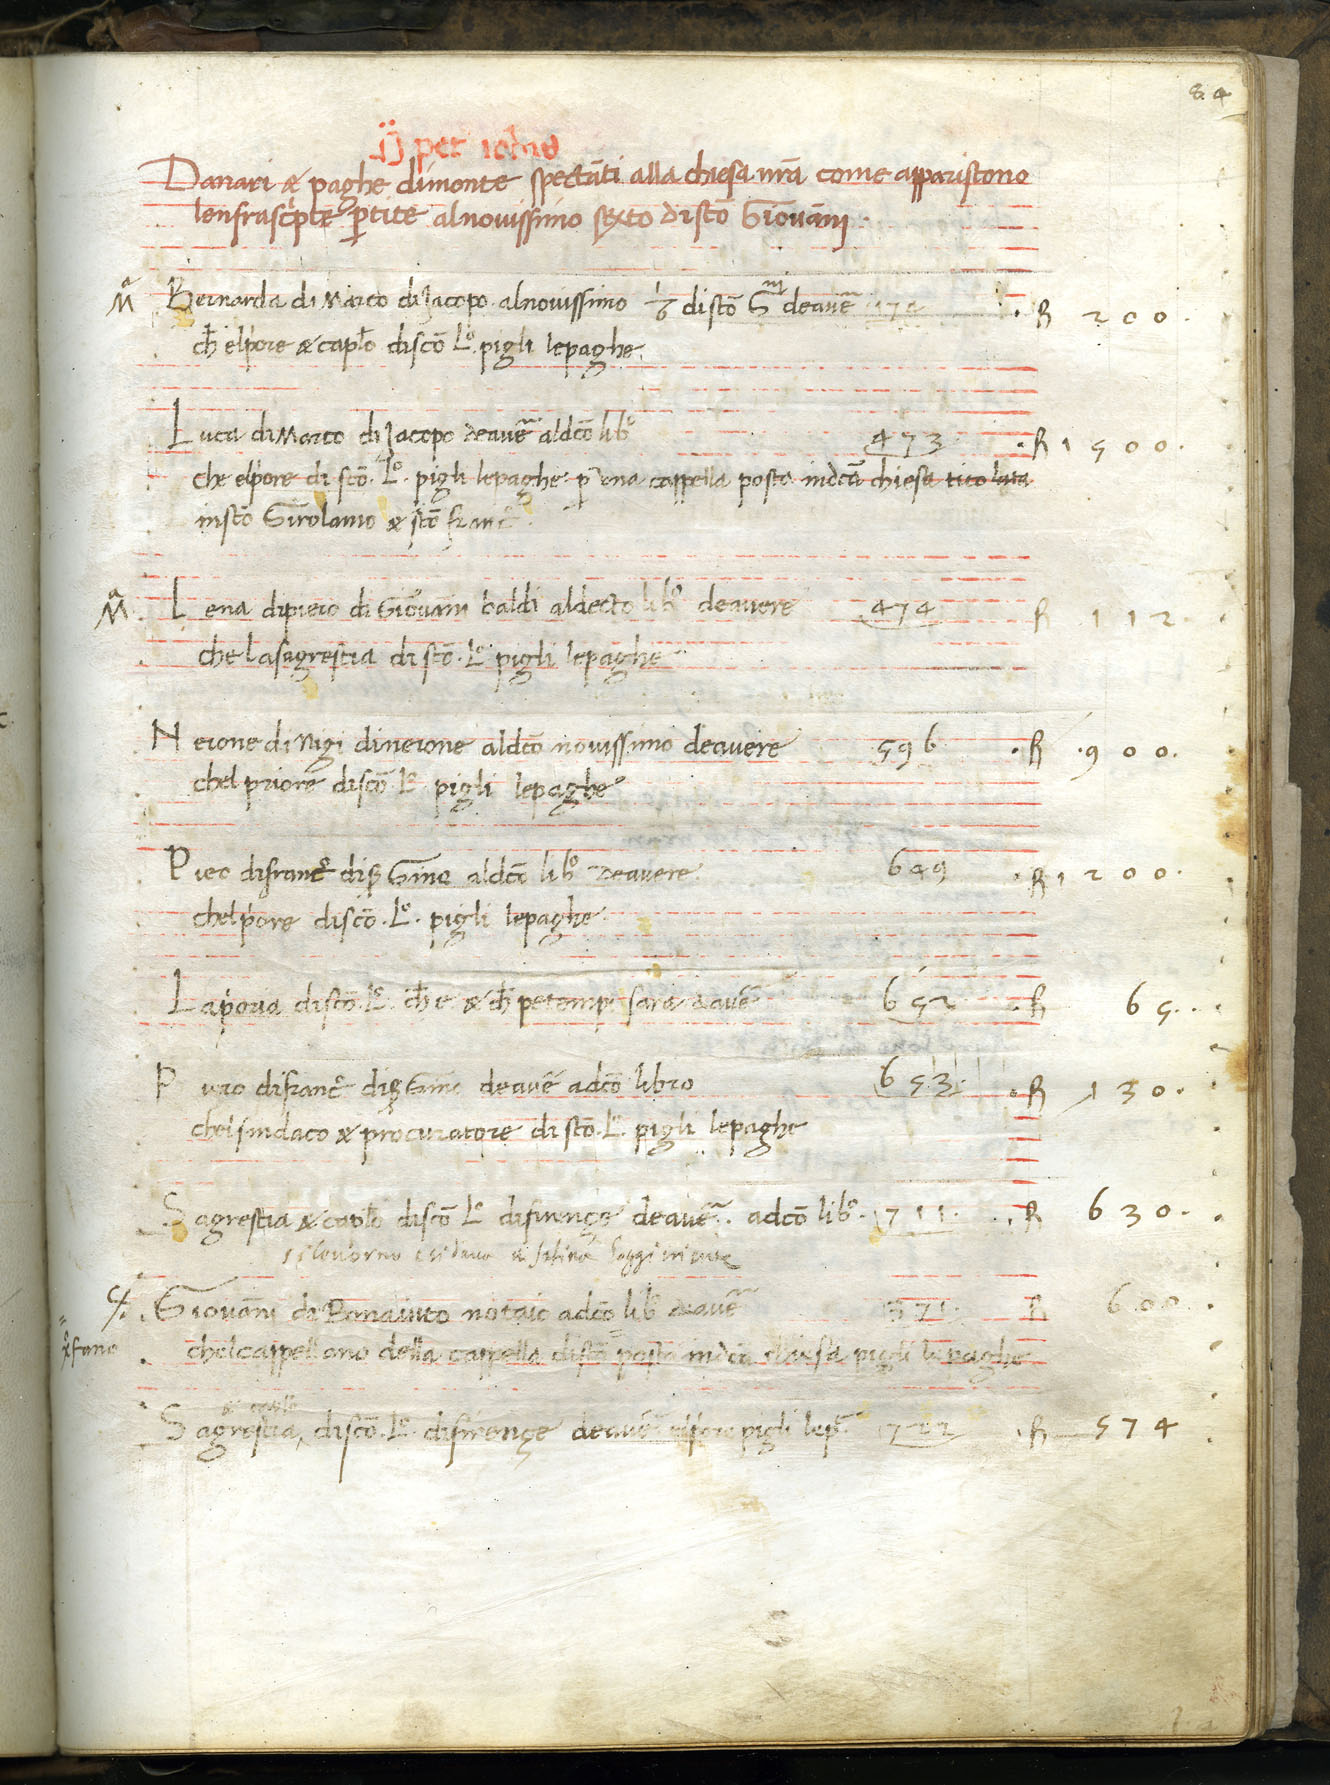 84
Danari & paghe dimonte spectāti alla chiesa nrā come appariscono
lenfrascripte ꝑtite alnovissimo sexto di scō Giovāni.
Bernarda di Marco di Jacopo alnovissimo 1/6 di scō Gni deavē 474 . R 200.
ch̄ elp̄ore & caplo discō Lo. pigli lepaghe.
Luca di Marco di Jacopo deavē aldcō libo 473 . R 1500.
che elpore di scō. Lo. pigli lepaghe ꝑ una cappella posta indcā chiesa titolata
inscō Girolamo & scō francº
Lena dipiero di Giovani baldi aldecto libº deavere 474 R 112.
che lasagrestia di scō. Lo pigli lepaghe
Nerone di Nigi dinerone aldcō novissimo deavere 596 . R .900.
chel priore discō Lo pigli lepaghe
Piero difrancº diß Gino aldcō libº deavere 649 . R 1200.
chelpore discō. Lo. pigli lepaghe.
Lapova discō. Lo ch̄ e & ch̄ petempi sara deavē 652 . R 65..
Piero difrancº diß Gino deavē adcō libro 653 . R 130.
chelsindaco & procuratore di scō. Lo. pigli lepaghe
Sagrestia & caplo discō Lo difirençe deavē. adcō libº. 711. . R 630.
Giovāni di Bonaiuto notaio adcō libº deavē 571. R 600
chelcappellano della cappella discō posta indcā chiesa pigli lepaghe
& caplo
Sagrestia, discō. Lo. difirençe deavē elpore pigli lepē 722 . R 574